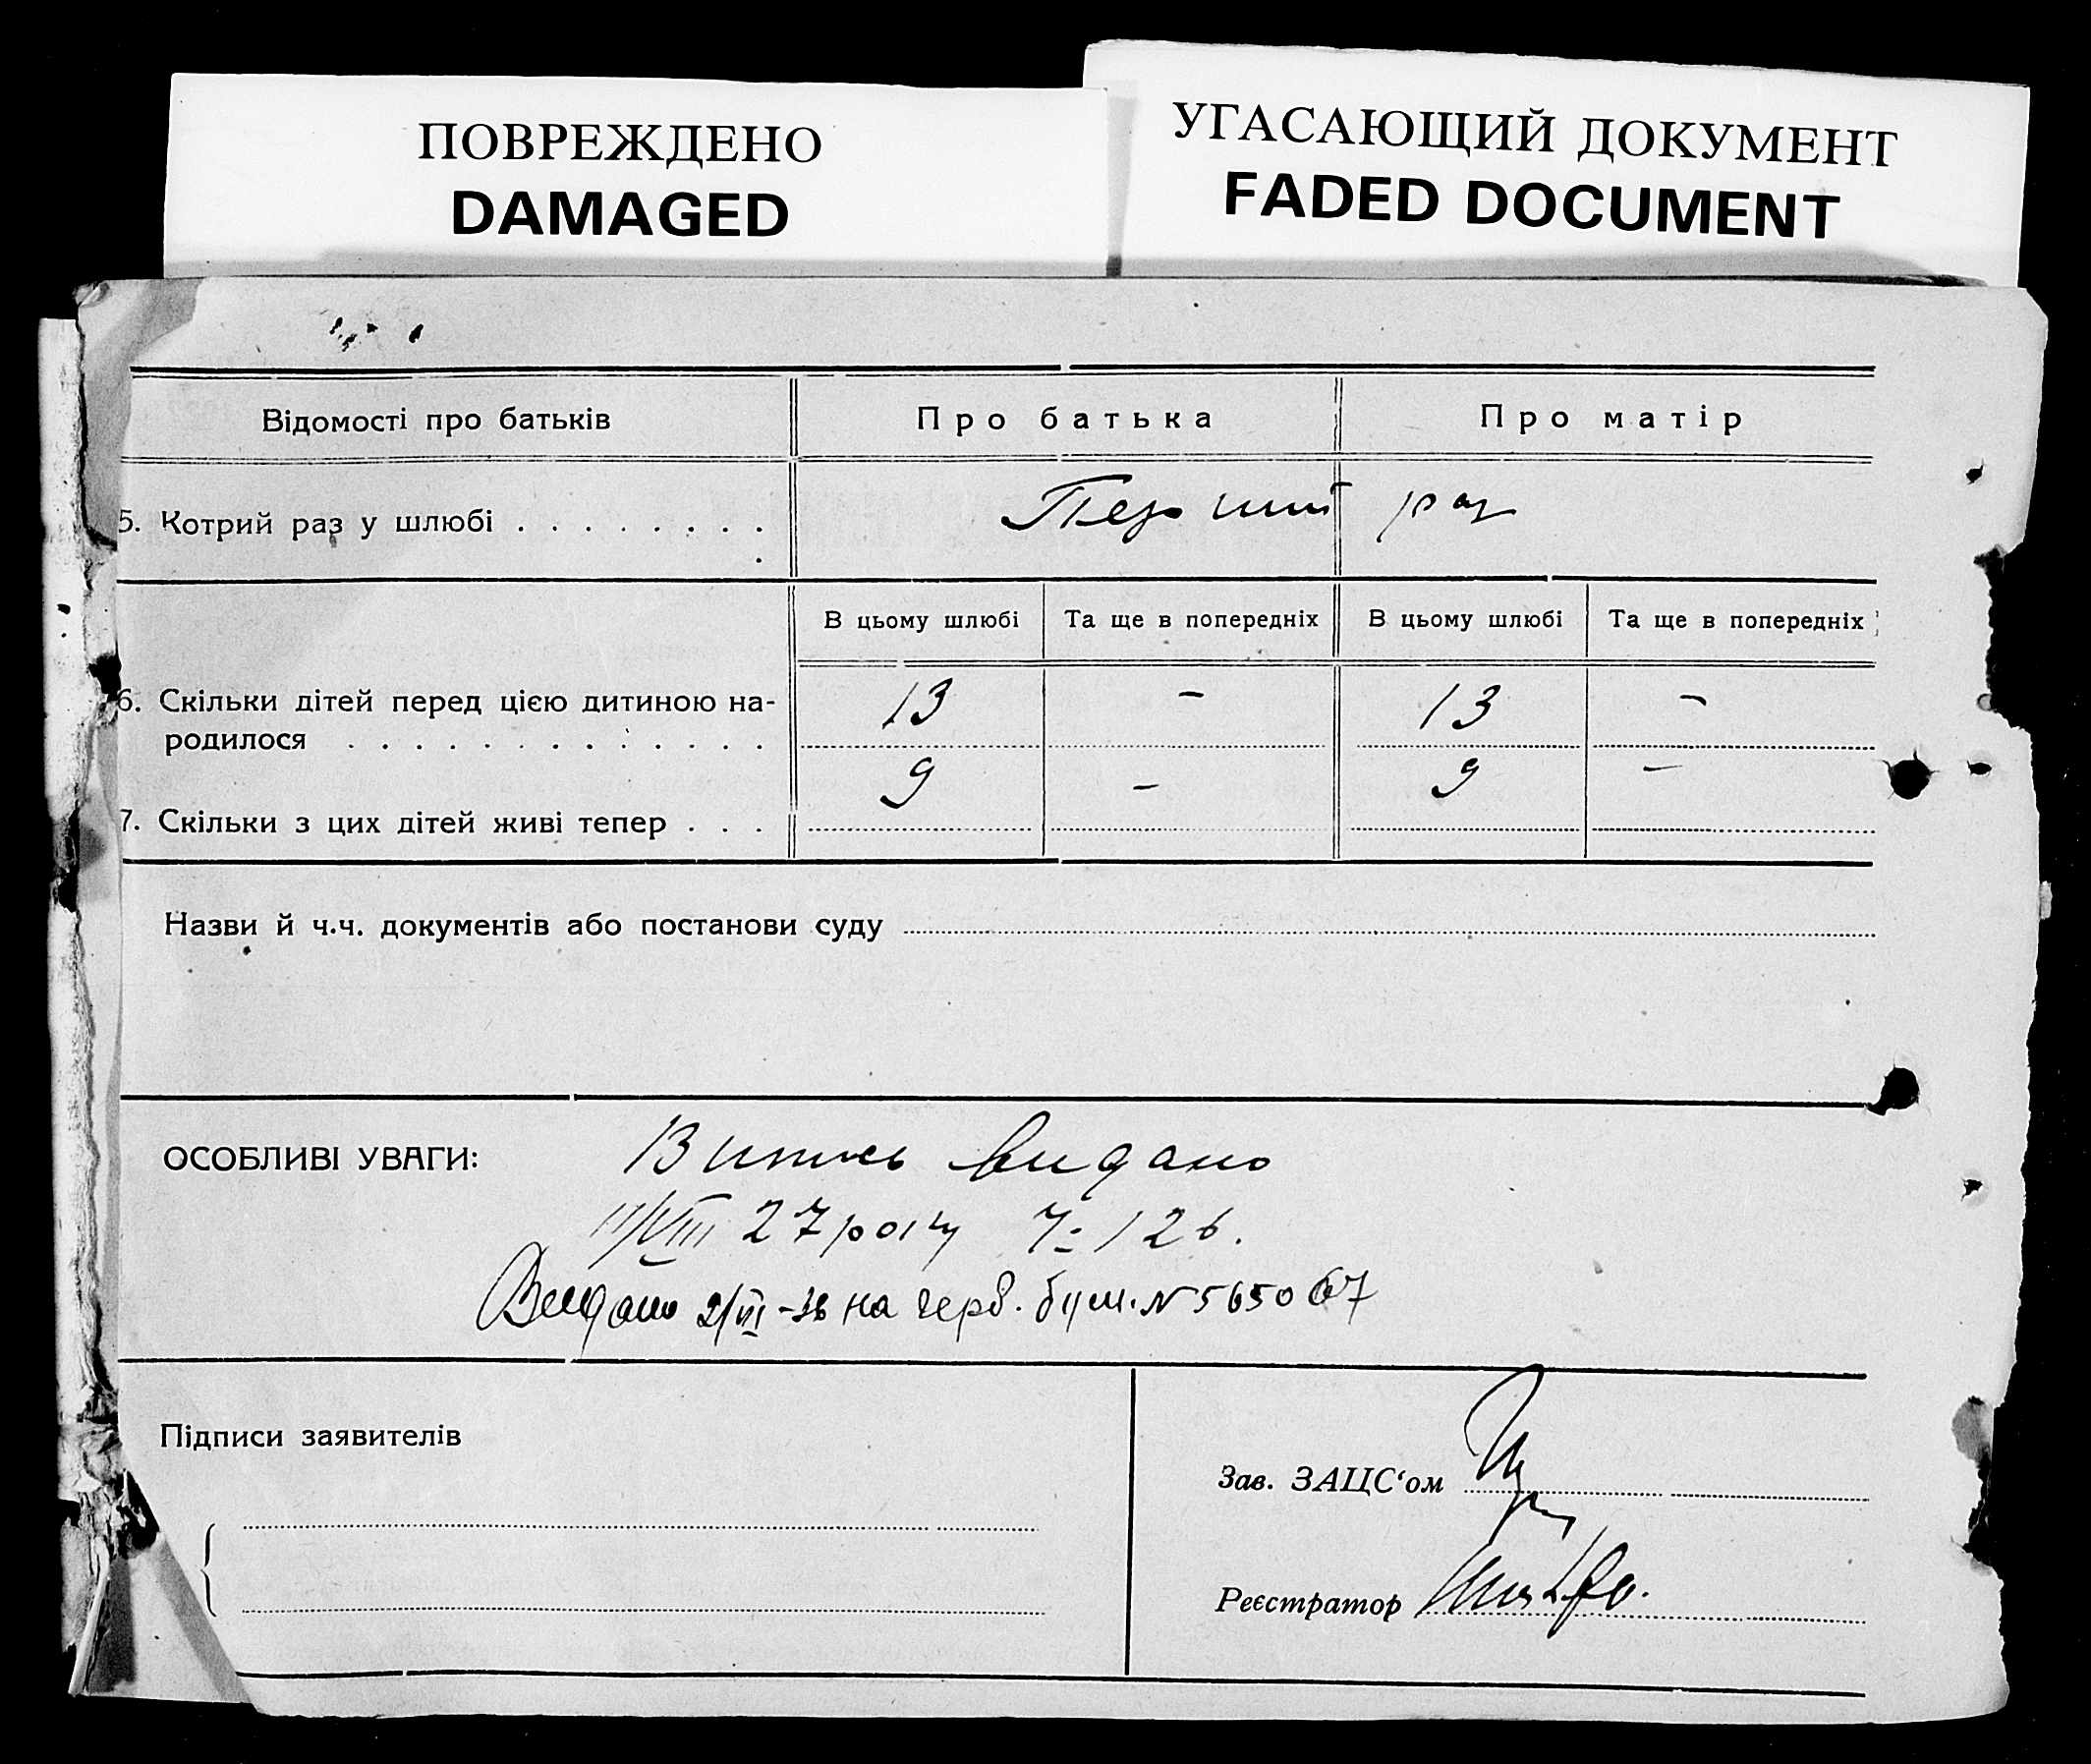 ПОВРЕЖДЕНО
DAMAGED
УГАСАЮЩИЙ ДОКУМЕНТ
FADED DOCUMENT
Відомості про батьків Про батька Про матір
5. Котрий раз у шлюбі . . . . . . . . Перший раз
В цьому шлюбі Та ще в попередніх В цьому шлюбі Та ще в попередніх
6. Скільки дітей перед цією дитиною на- 13 – 13 –
родилося . . . . . . . . . . . . .
9 – 9 –
7. Скільки з цих дітей живі тепер . . .
Назви й ч.ч. документів або постанови суду
ОСОБЛИВІ УВАГИ: Випись видано
11/VIII 27 року Ч: 126.
Видано 2/VII-38 на черв. буш. N 565067
Підписи заявителів
Зав. ЗАЦС‘ом
Реєстратор